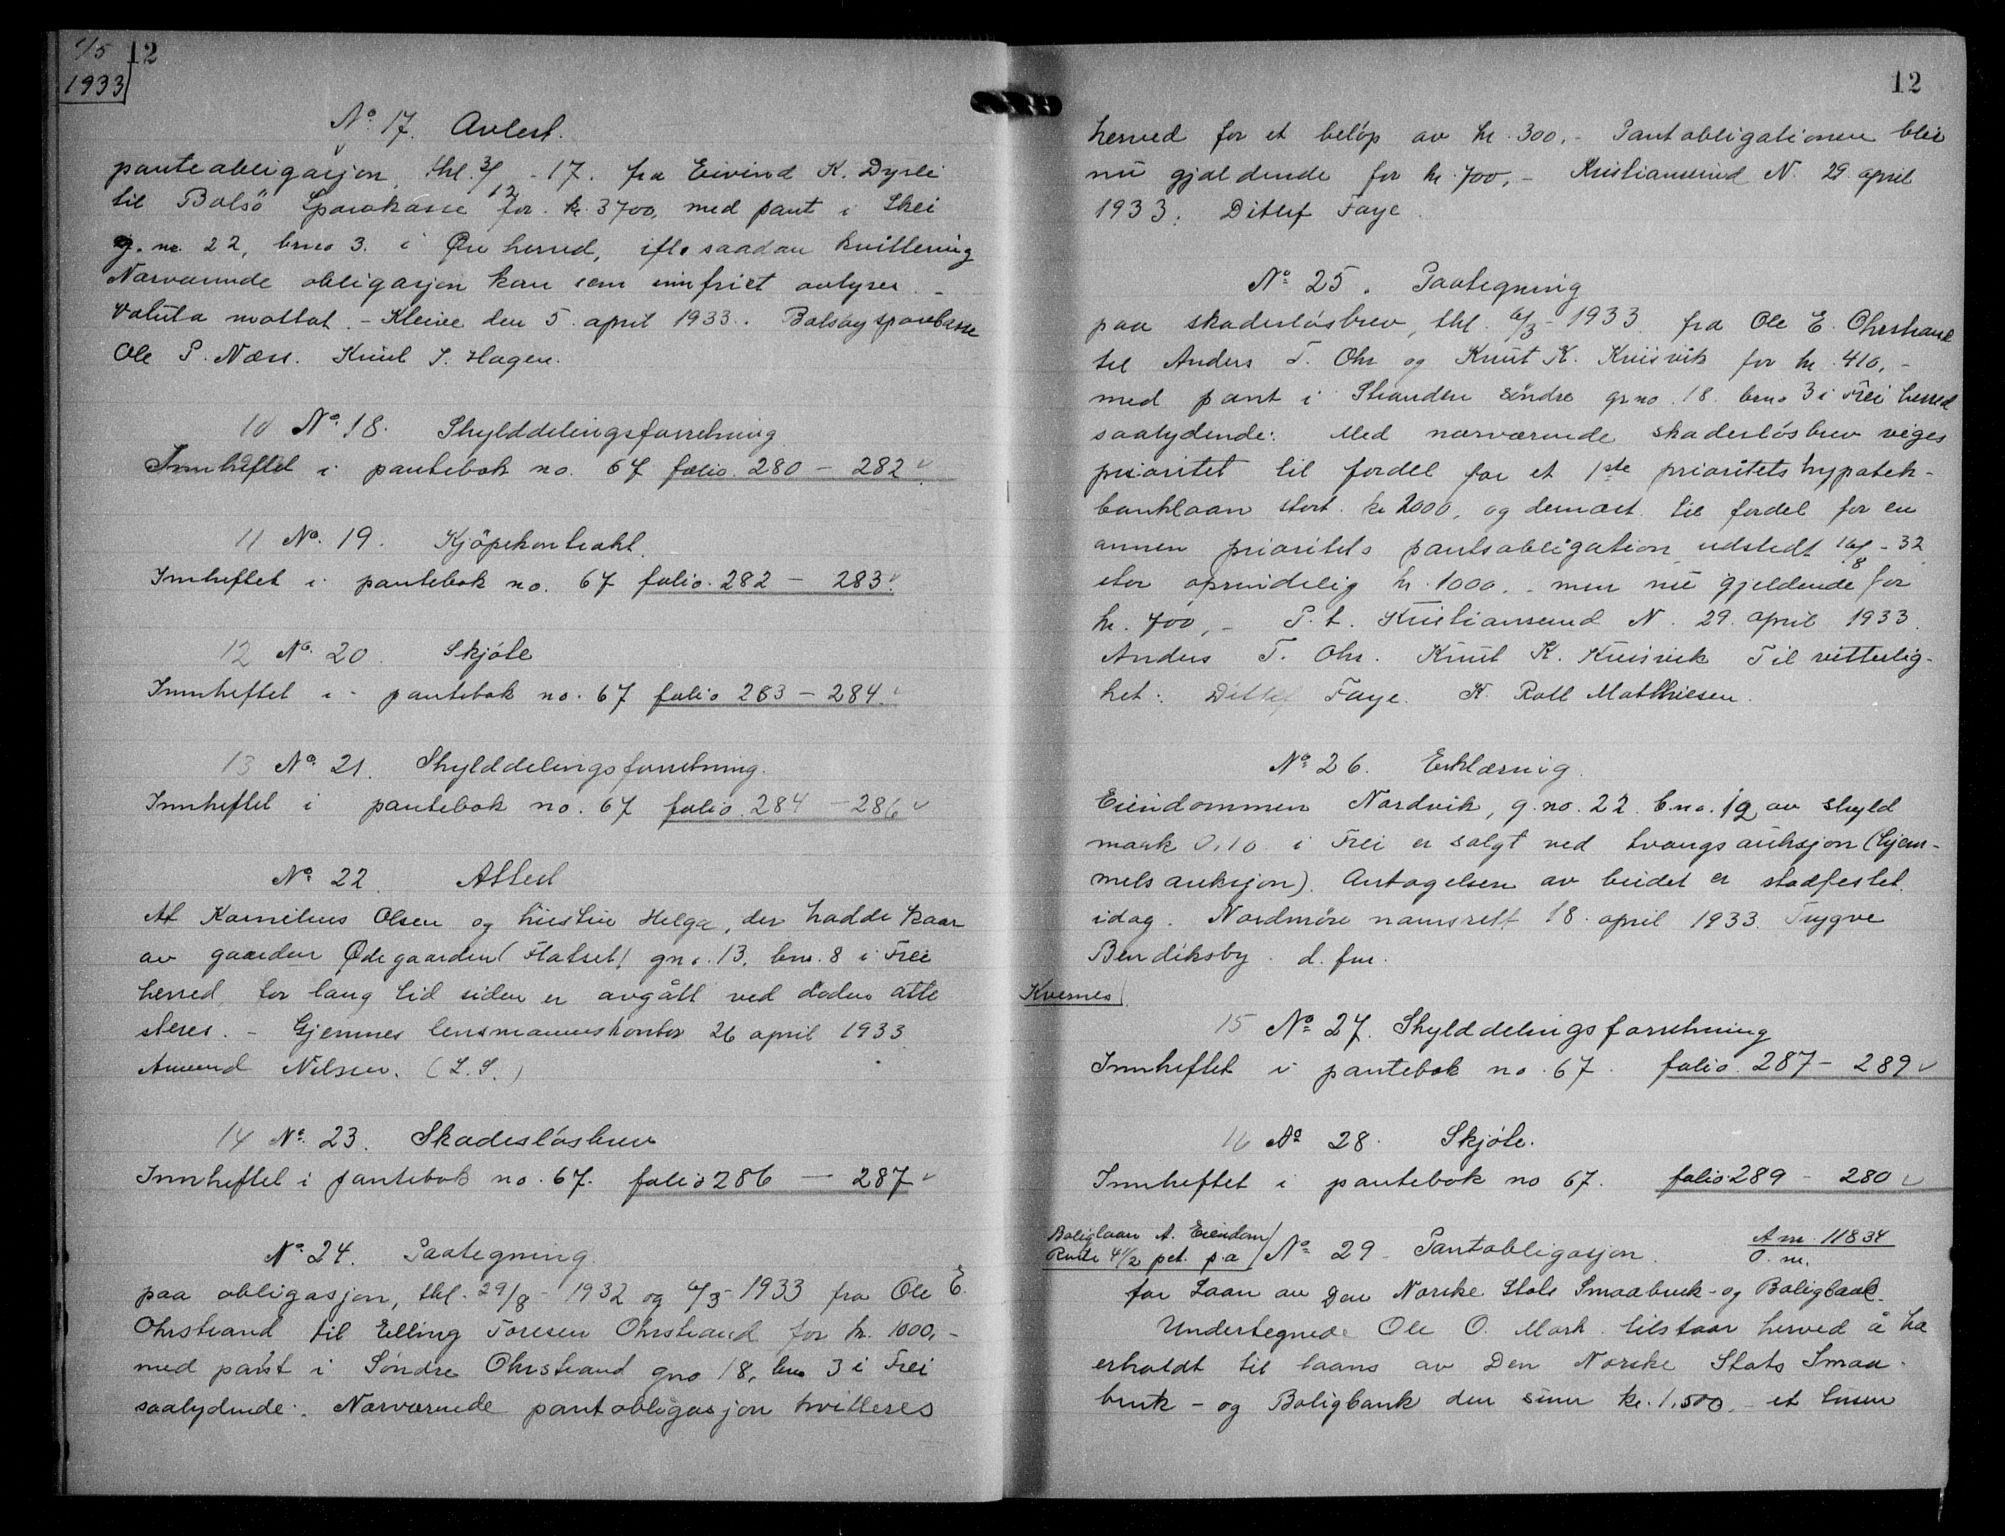 1/5 12
1933
No. 17. Avlest.
panteobligasjon, thl. 3/12 - 17. fra Eivind K. Dyrli
til Bolsö Sparekasse for kr. 3700, med pant i Skei
g. nr. 22, brno 3. i Øre herred, ifl. saadan kvittering
Nærværende obligasjon kan som innfriet avlyses. -
Valuta mottat. - Kleive den 5. april 1933. Bolsøy sparebasse
Ole P. Næss. Knut S. Hagen.
10 No. 18. Skylddelingsforretning
Innheftet i pantebok no. 67 folio. 280 - 282 v
11 No. 19. Kjöpekontrakt.
Innheftet i pantebok no. 67 folio. 282 - 283 v
12 No. 20. Skjöte
Innheftet i pantebok no. 67 folio 283 - 284 v
13 No. 21. Skylddelingsforretning.
Innheftet i pantebok no. 67 folio. 284 - 286 v
No. 22. Attest
At Kornelius Olsen og hustru Helga, der hadde kaar
av gaarden Ødegaarden (Flatset) gno. 13, bno. 8 i Frei
herred for lang tid siden er avgått ved döden atte
steres. - Gjemnes lensmannskontor 26 april 1933
Amund Nilsen. (L.S.)
14 No. 23. Skadesløsbrev
Innheftet i pantebok no. 67. folio 286 - 287 v
No. 24. Paategning
paa obligasjon, thl. 29/8 - 1932 og 6/3 - 1933 fra Ole E.
Ohrstrand til Elling Toresen Ohrstrand for kr. 1000,-
med pant i Søndre Ohrstrand gno 18, bno 3 i Frei
saalydende: Nærværende pantobligasjon kvitteres
12
herved for et beløp av kr. 300,- Pantobligationen blir
nu gjældende for kr. 700,- Kristiansund N. 29. april
1933. Ditlef Faye.
No. 25. Paategning
paa skadesløsbrev, thl. 6/3 - 1933 fra Ole E. Ohrstrand
til Anders T. Ohr og Knut K. Kvisvik for kr. 410,-
med pant i Stranden søndre gr no. 18 brno 3 i Frei herred
saalydende: Med nærværende skadesløsbrev viges
prioritet til fordel for et 1ste prioritets hypotek-
banklaan stort kr 2000, og dernæst til fordel for en
annen prioritets pantsobligation udstedt 16/8 - 32
stor oprindelig kr. 1000.- men nu gjeldende for
kr. 700,- P.t. Kristiansund N. 29. april 1933.
Anders T. Ohr. Knut K. Kvisvik Til vitterlig-
het: Ditlef Faye. K. Roll Matthiesen.
No. 26. Erklæring.
Eiendommen Nordvik, g.no. 22 b.no. 12 av skyld
mark 0,10 i Frei er solgt ved tvangsauksjon (hjem-
melsauksjon). Antagelsen av budet er stadfestet
idag. Nordmöre namsrett 18. april 1933. Trygve
Bendiksby. d. fm.
Kvernes
15 No. 27. Skylddelingsforretning
Innheftet i pantebok no. 67. folio. 287 - 289 v
16 No. 28. Skjöte.
Innheftet i pantebok no 67. folio 289 - 280 v
Boliglaan A. Eiendom
Rente 4 1/2 pct. p.a. No. 29. Pantobligasjon. A m. 11834
O. m.
for Laan av Den Norske Stats Smaabruk- og Boligbank.
Undertegnede Ole O. Mork tilstaar herved å ha
erholdt til laans av Den Norske Stats Smaa-
bruk - og Boligbank den sum kr. 1,500,- et tusen